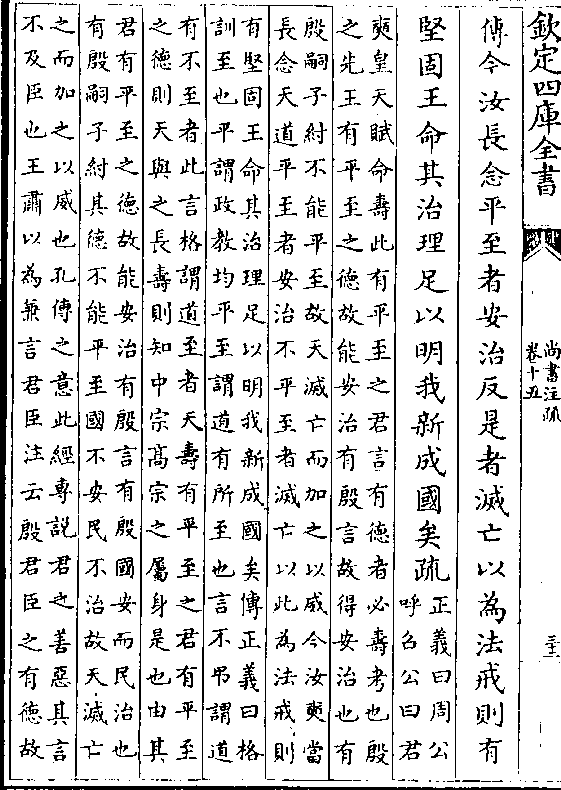 欽定四庫全書
尚書注疏
卷十五
傳今汝長念平至者安治反是者滅亡以為法戒則有
堅固王命其治理足以明我新成國矣疏
正義曰周公
呼召公曰君
奭皇天賦命壽此有平至之君言有德者必壽考也殷
之先王有平至之德故能安治有殷言故得安治也有
殷嗣子紂不能平至故天滅亡而加之以威今汝奭當
長念天道平至者安治不平至者滅亡以此為法戒則
有堅固王命其治理足以明我新成國矣傳正義曰格
訓至也平謂政教均平至謂道有所至也言不弔謂道
有不至者此言格謂道至者天壽有平至之君有平至
之德則天與之長壽則知中宗髙宗之屬身是也由其
君有平至之德故能安治有殷言有殷國安而民治也
有殷嗣子紂其德不能平至國不安民不治故天滅亡
之而加之以威也孔傳之意此經專說君之善惡其言
不及臣也王肅以為兼言君臣注云殷君臣之有德故